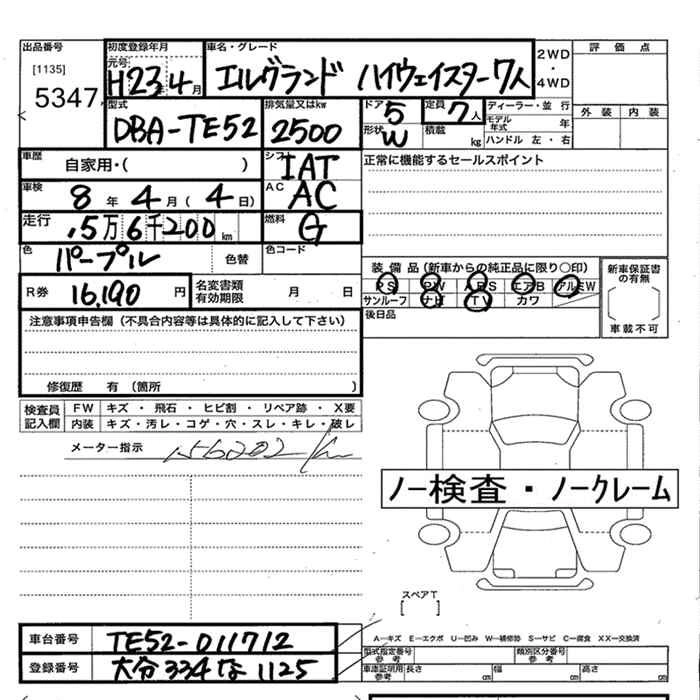 出品番号
[1135]
5347
初度登録年月
元号
H23年4月
車名・グレード
エルグランド ハイウェイスター7人
2WD
・
4WD
評価点
外装 内装
型式
DBA-TE52
排気量又はkw
2500
ドア
5
定員
7人
形状
W
積載
kg
ディーラー・並行
モデル年式 年
ハンドル 左・右
車歴
自家用・( )
シフト
IAT
正常に機能するセールスポイント
車検
8年4月(4日)
AC
AC
走行
5万6千200km
燃料
G
色
パープル
色替
色コード
R券
16,190円
名変書類
有効期限 月 日
装備品(新車からの純正品に限り○印)
PS PW ABS エアB アルミW
サンルーフ ナビ TV カワ
後日品
新車保証書
の有無
車載不可
注意事項申告欄(不具合内容等は具体的に記入して下さい)
修復歴 有(箇所 )
検査員
記入欄
FW キズ・飛石・ヒビ割・リペア跡・X要
内装 キズ・汚レ・コゲ・穴・スレ・キレ・破レ
メーター指示
156202km
ノー検査・ノークレーム
スペアT
[ ]
車台番号 TE52-011712
登録番号 大分334な1125
A―キズ E―エクボ U―凹み W―補修跡 S―サビ C―腐食 XX―交換済
型式指定番号
参考
類別区分番号
参考
車庫証明用
参考
長さ cm 幅 cm 高さ cm